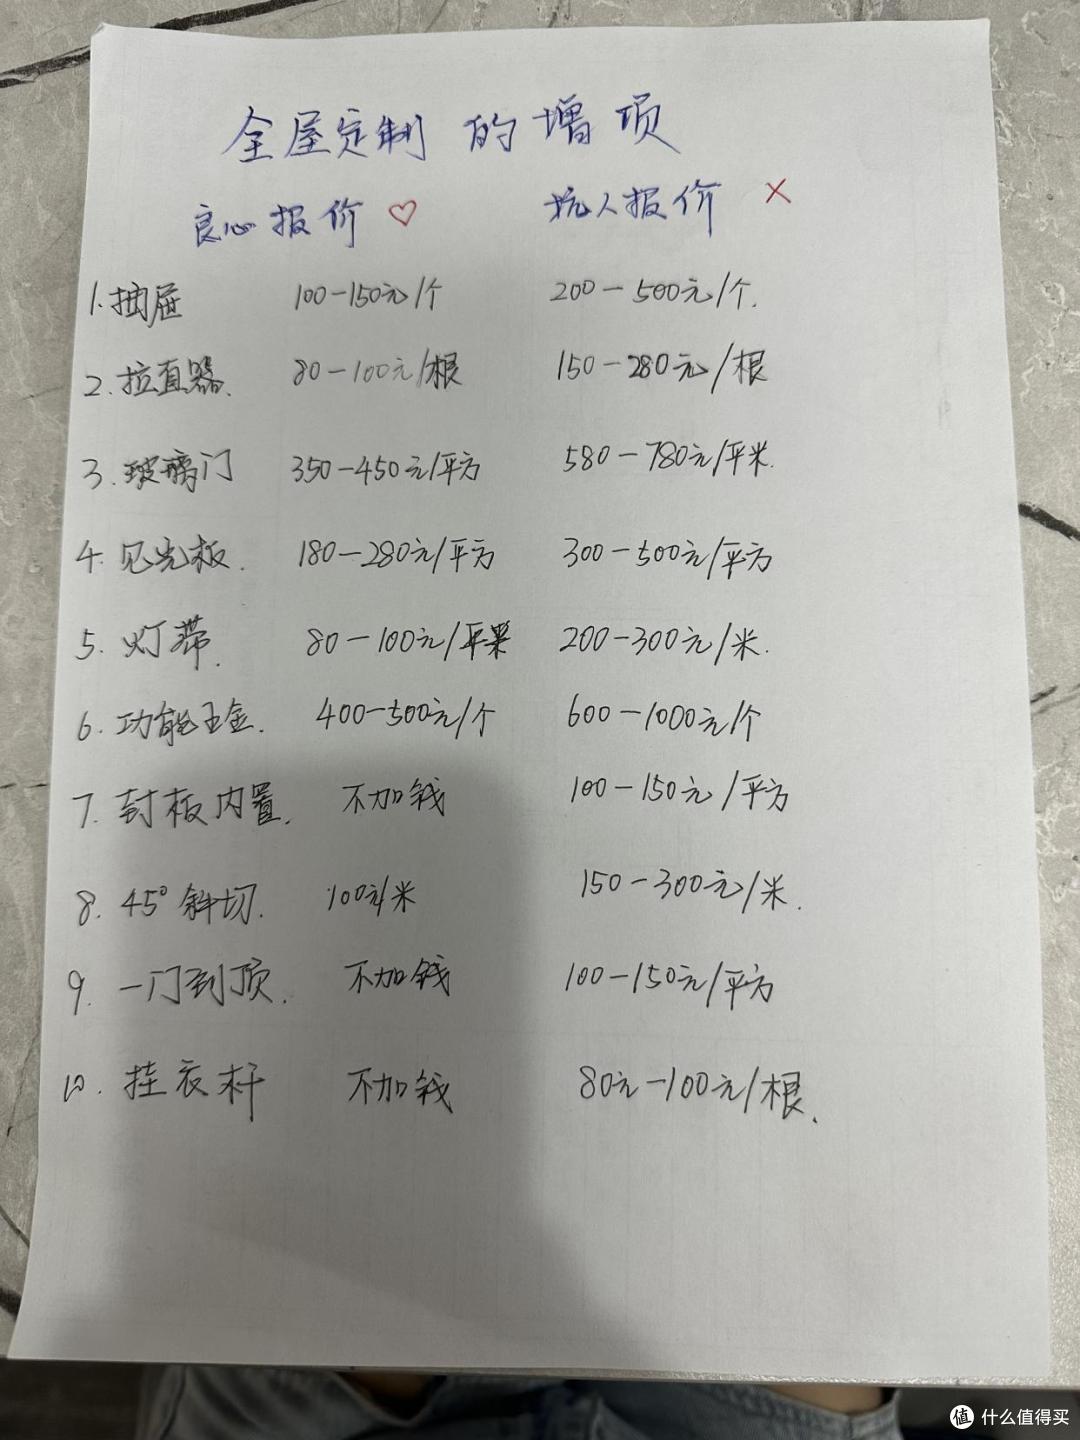 全屋定制 的增项
良心报价 ♡ 坑人报价 ×
1.抽屉 100-150元/个 200-500元/个.
2.拉直器. 80-100元/根 150-280元/根
3.玻璃门 350-450元/平方 580-780元/平米.
4.见光板. 180-280元/平方 300-500元/平方
5.灯带. 80-100元/平米 200-300元/米.
6.功能五金. 400-500元/个 600-1000元/个
7.封板内置. 不加钱 100-150元/平方
8.45°斜切. 100元/米 150-300元/米.
9.一门到顶. 不加钱 100-150元/平方
10.挂衣杆 不加钱 80元-100元/根.
值 什么值得买